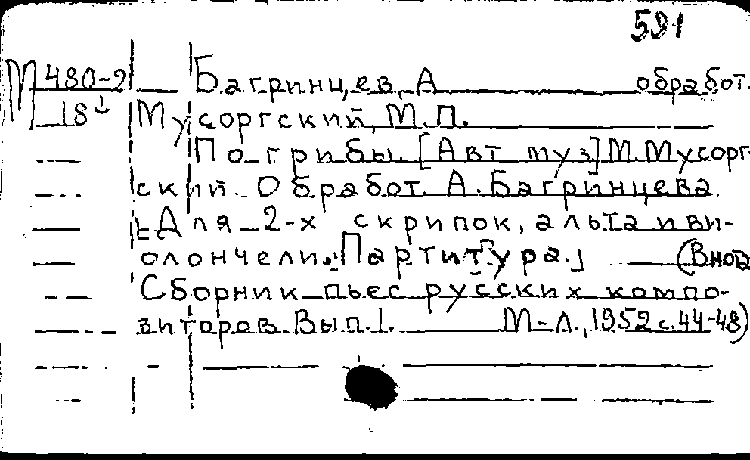 591
М 480-2 Багринцев, А обработ.
18 Мусоргский, М.П.
По грибы. [Авт муз] М. Мусорг-
ский. Обработ. А. Багринцева.
[Для 2-х скрипок, альта и ви-
олончели. Партитура.] (В нот.
Сборник пьес русских компо-
зиторов. Вып. 1. М-Л., 1952 с. 44-48)